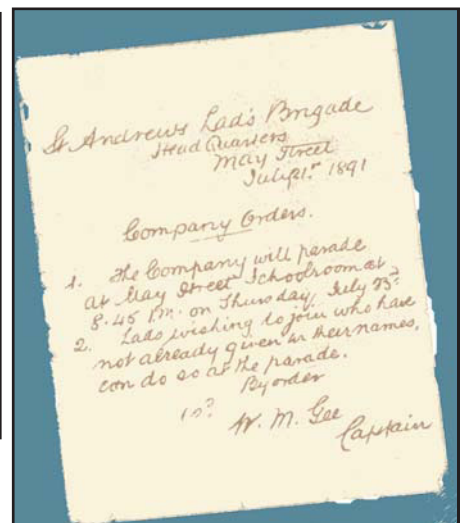 St Andrews Lad's Brigade
Head Quarters
May Street
July 21st 1891
Company Orders.
1. The Company will parade
at May Street Schoolroom at
8.45 P.M. on Thursday, July 23rd
2. Lads wishing to join who have
not already given in their names,
can do so at the parade.
By order
W. M. Gee
Captain